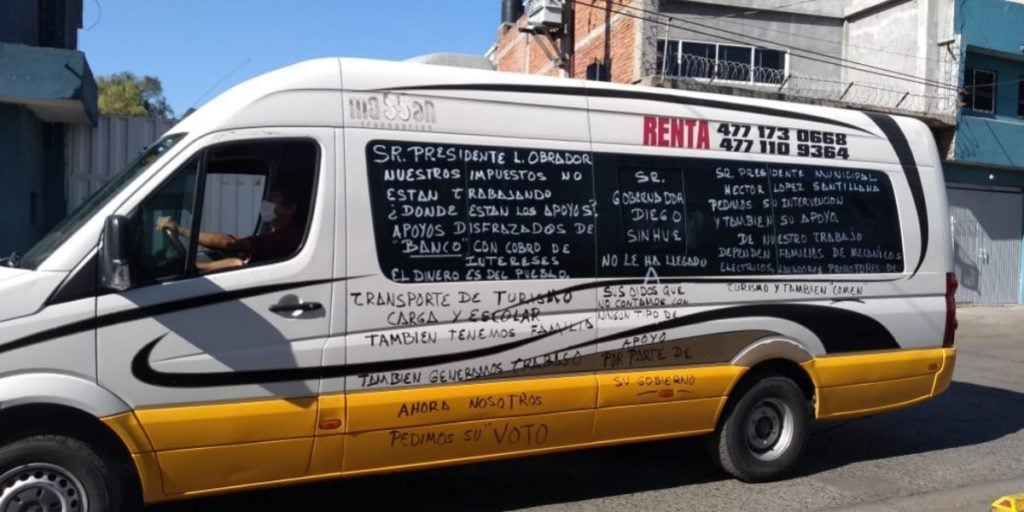 maSSan
RENTA 477 173 0668
477 110 9364
SR. PRESIDENTE L. OBRADOR
NUESTROS IMPUESTOS NO
ESTAN TRABAJANDO
¿DONDE ESTAN LOS APOYOS?
APOYOS DISFRAZADOS DE
"BANCO" CON COBRO DE
INTERESES
EL DINERO ES DEL PUEBLO.
SR.
GOBERNADOR
DIEGO
SINHUE
NO LE HA LLEGADO
A
SUS OIDOS QUE
NO CONTAMOS CON
NINGUN TIPO DE
APOYO
POR PARTE DE
SU GOBIERNO
SR. PRESIDENTE MUNICIPAL
HECTOR LOPEZ SANTILLANA
PEDIMOS SU INTERVENCION
Y TAMBIEN SU APOYO
DE NUESTRO TRABAJO
DEPENDEN FAMILIAS DE MECANICOS
ELECTRICOS, LAVADORES PROMOTORES DE
TURISMO Y TAMBIEN COMEN
TRANSPORTE DE TURISMO
CARGA Y ESCOLAR
TAMBIEN TENEMOS FAMILIA
TAMBIEN GENERAMOS TRABAJO
AHORA NOSOTROS
PEDIMOS SU "VOTO"